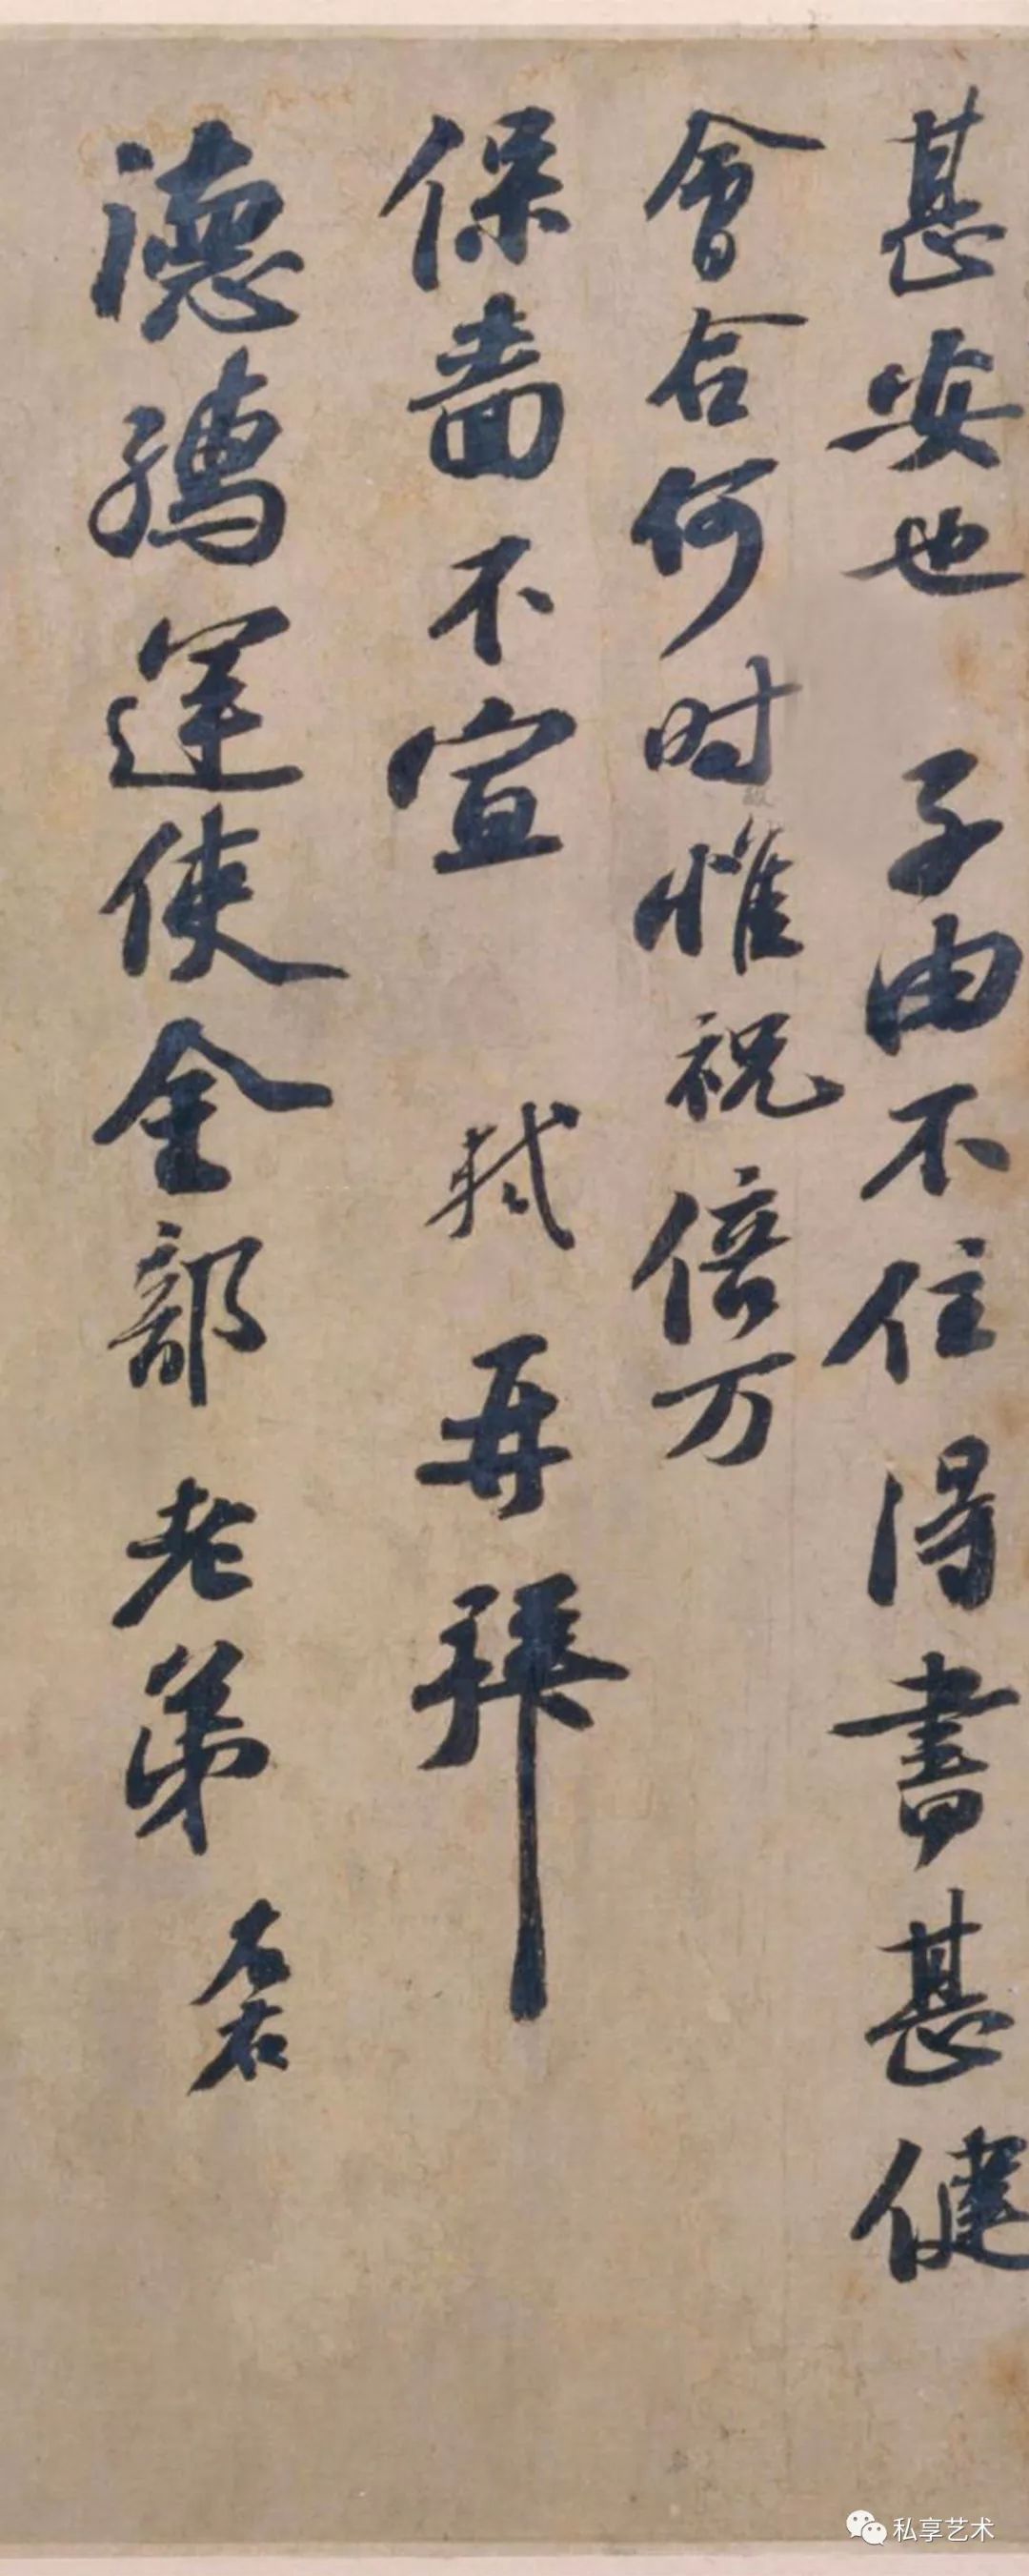 甚安也 子由不住得書甚健
會合何时惟祝倍万
保嗇不宣 軾再拜
德孺運使金部老弟 左右
私享艺术